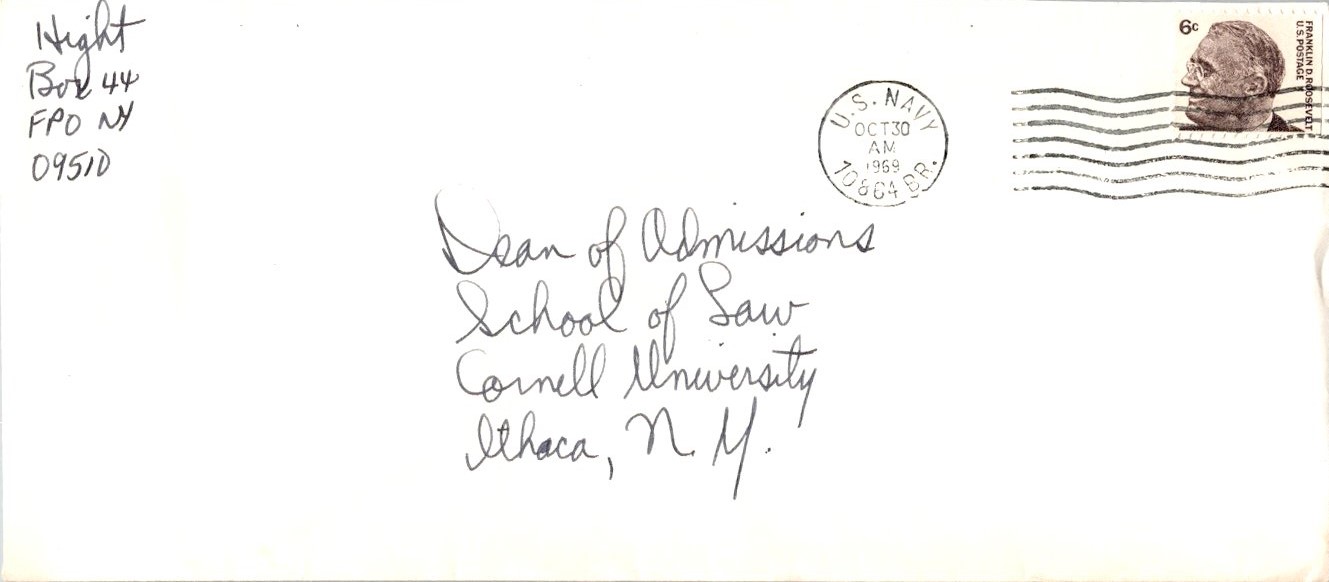 Hight
Box 44
FPO NY
09510
6c
FRANKLIN D. ROOSEVELT
U.S. POSTAGE
U.S. NAVY
OCT 30
AM
1969
10864 BR.
Dean of Admissions
School of Law
Cornell University
Ithaca, N.Y.